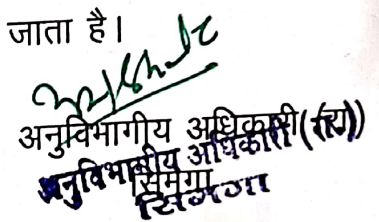 जाता है।
अनुविभागीय अधिकारी
अनुविभागीय अधिकारी
सिमगा
सिमगा